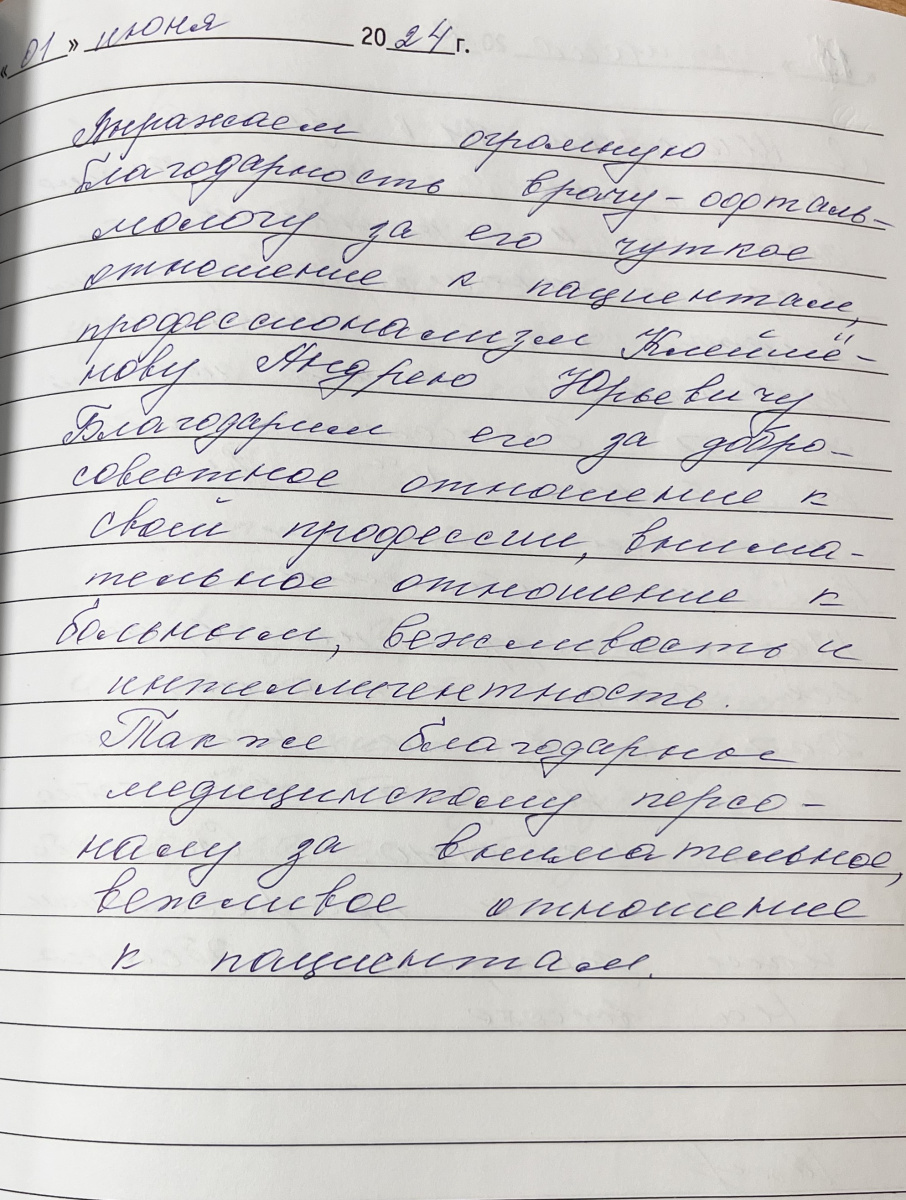 « 01 » июня 2024 г.
Выражаем огромную
благодарность врачу-офталь-
мологу за его чуткое
отношение к пациентам,
профессионализм Клеймё-
нову Андрею Юрьевичу
Благодарим его за добро-
совестное отношение к
своей профессии, внима-
тельное отношение к
больным, вежливость и
интеллигентность.
Также благодарные
медицинскому персо-
налу за внимательное,
вежливое отношение
к пациентам.